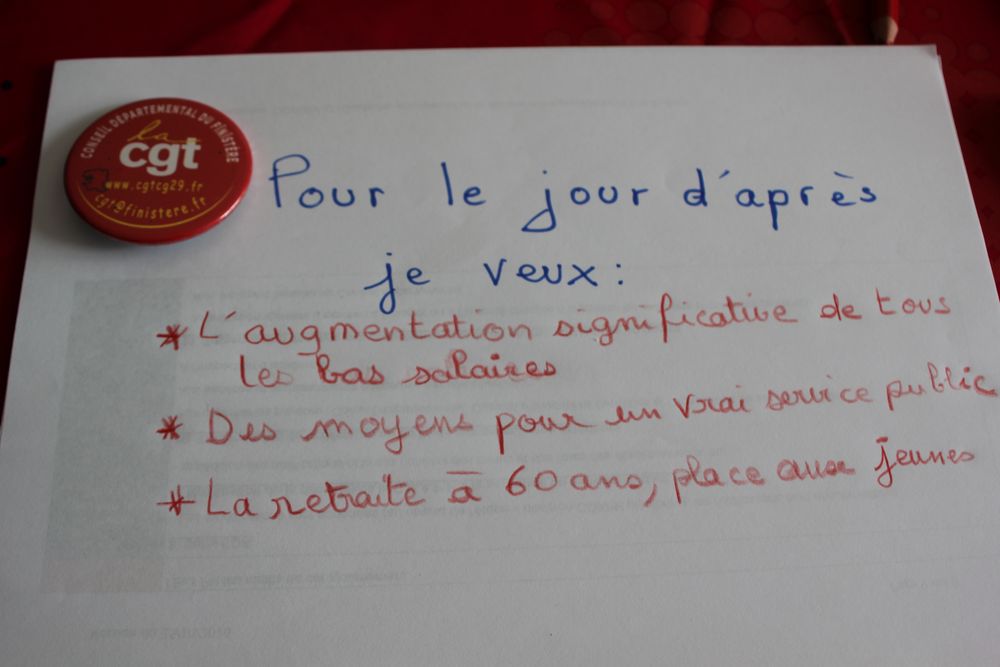 CONSEIL DÉPARTEMENTAL DU FINISTÈRE
la
cgt
www.cgtcg29.fr
cgt@finistere.fr
Pour le jour d'après
je veux :
* L'augmentation significative de tous
les bas salaires
* Des moyens pour un vrai service public
* La retraite à 60 ans, place aux jeunes